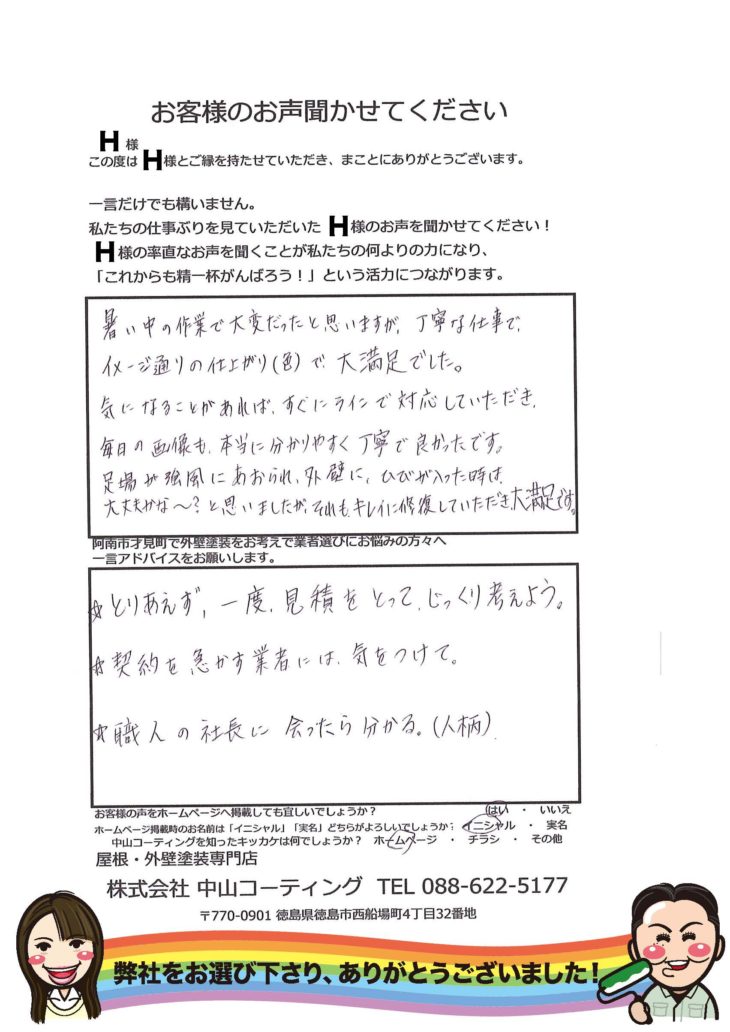 お客様のお声聞かせてください
H 様
この度は H 様とご縁を持たせていただき、まことにありがとうございます。
一言だけでも構いません。
私たちの仕事ぶりを見ていただいた H 様のお声を聞かせてください！
H 様の率直なお声を聞くことが私たちの何よりの力になり、
「これからも精一杯がんばろう！」という活力につながります。
暑い中の作業で大変だったと思いますが、丁寧な仕事で、
イメージ通りの仕上がり(色)で、大満足でした。
気になることがあれば、すぐにラインで対応していただき、
毎日の画像も、本当に分かりやすく丁寧で良かったです。
足場が強風にあおられ、外壁に、ひびが入った時は、
大丈夫かな〜？と思いましたが、それも、キレイに修復していただき大満足です。
阿南市才見町で外壁塗装をお考えで業者選びにお悩みの方々へ
一言アドバイスをお願いします。
☆とりあえず、一度、見積をとって、じっくり考えよう。
☆契約を急かす業者には、気をつけて。
☆職人の社長に会ったら分かる。(人柄)
お客様の声をホームページへ掲載しても宜しいでしょうか？ はい ・ いいえ
ホームページ掲載時のお名前は「イニシャル」「実名」どちらがよろしいでしょうか？ イニシャル ・ 実名
中山コーティングを知ったキッカケは何でしょうか？ ホームページ ・ チラシ ・ その他
屋根・外壁塗装専門店
株式会社 中山コーティング TEL 088-622-5177
〒770-0901 徳島県徳島市西船場町4丁目32番地
弊社をお選び下さり、ありがとうございました！